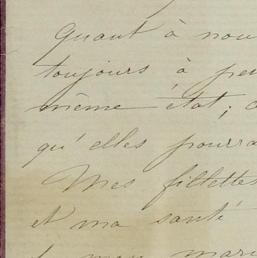 Quant à nou
toujours à peu
même état; c
qu'elles pourra
Mes fillettes
et ma santé